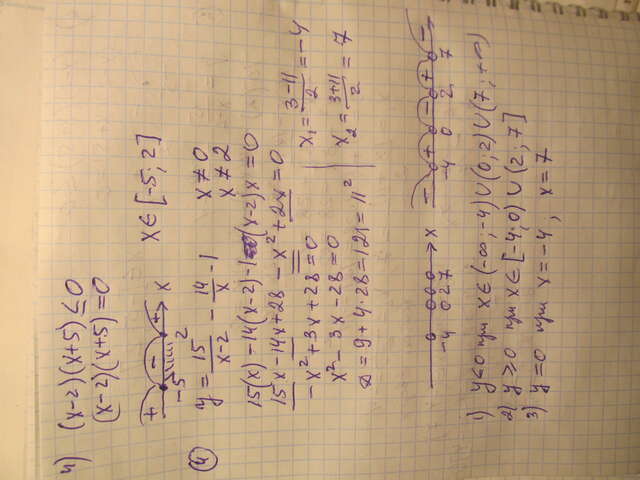 4) (x-2)(x+5) ≤ 0
(x-2)(x+5)=0
+ - + x
-5 2
x ∈ [-5; 2]
④ y = 15/(x-2) - 14/x - 1
x ≠ 0
x ≠ 2
15(x) - 14(x-2) - 1(x-2)x = 0
15x - 14x + 28 - x² + 2x = 0
-x² + 3x + 28 = 0
x² - 3x - 28 = 0
D = 9 + 4·28 = 121 = 11²
x₁ = (3-11)/2 = -4
x₂ = (3+11)/2 = 7
-4 0 2 7 x
- + - + -
-4 0 2 7
1) y < 0 при x ∈ (-∞; -4) ∪ (0; 2) ∪ (7; +∞)
2) y ≥ 0 при x ∈ [-4; 0) ∪ (2; 7]
3) y = 0 при x = -4, x = 7